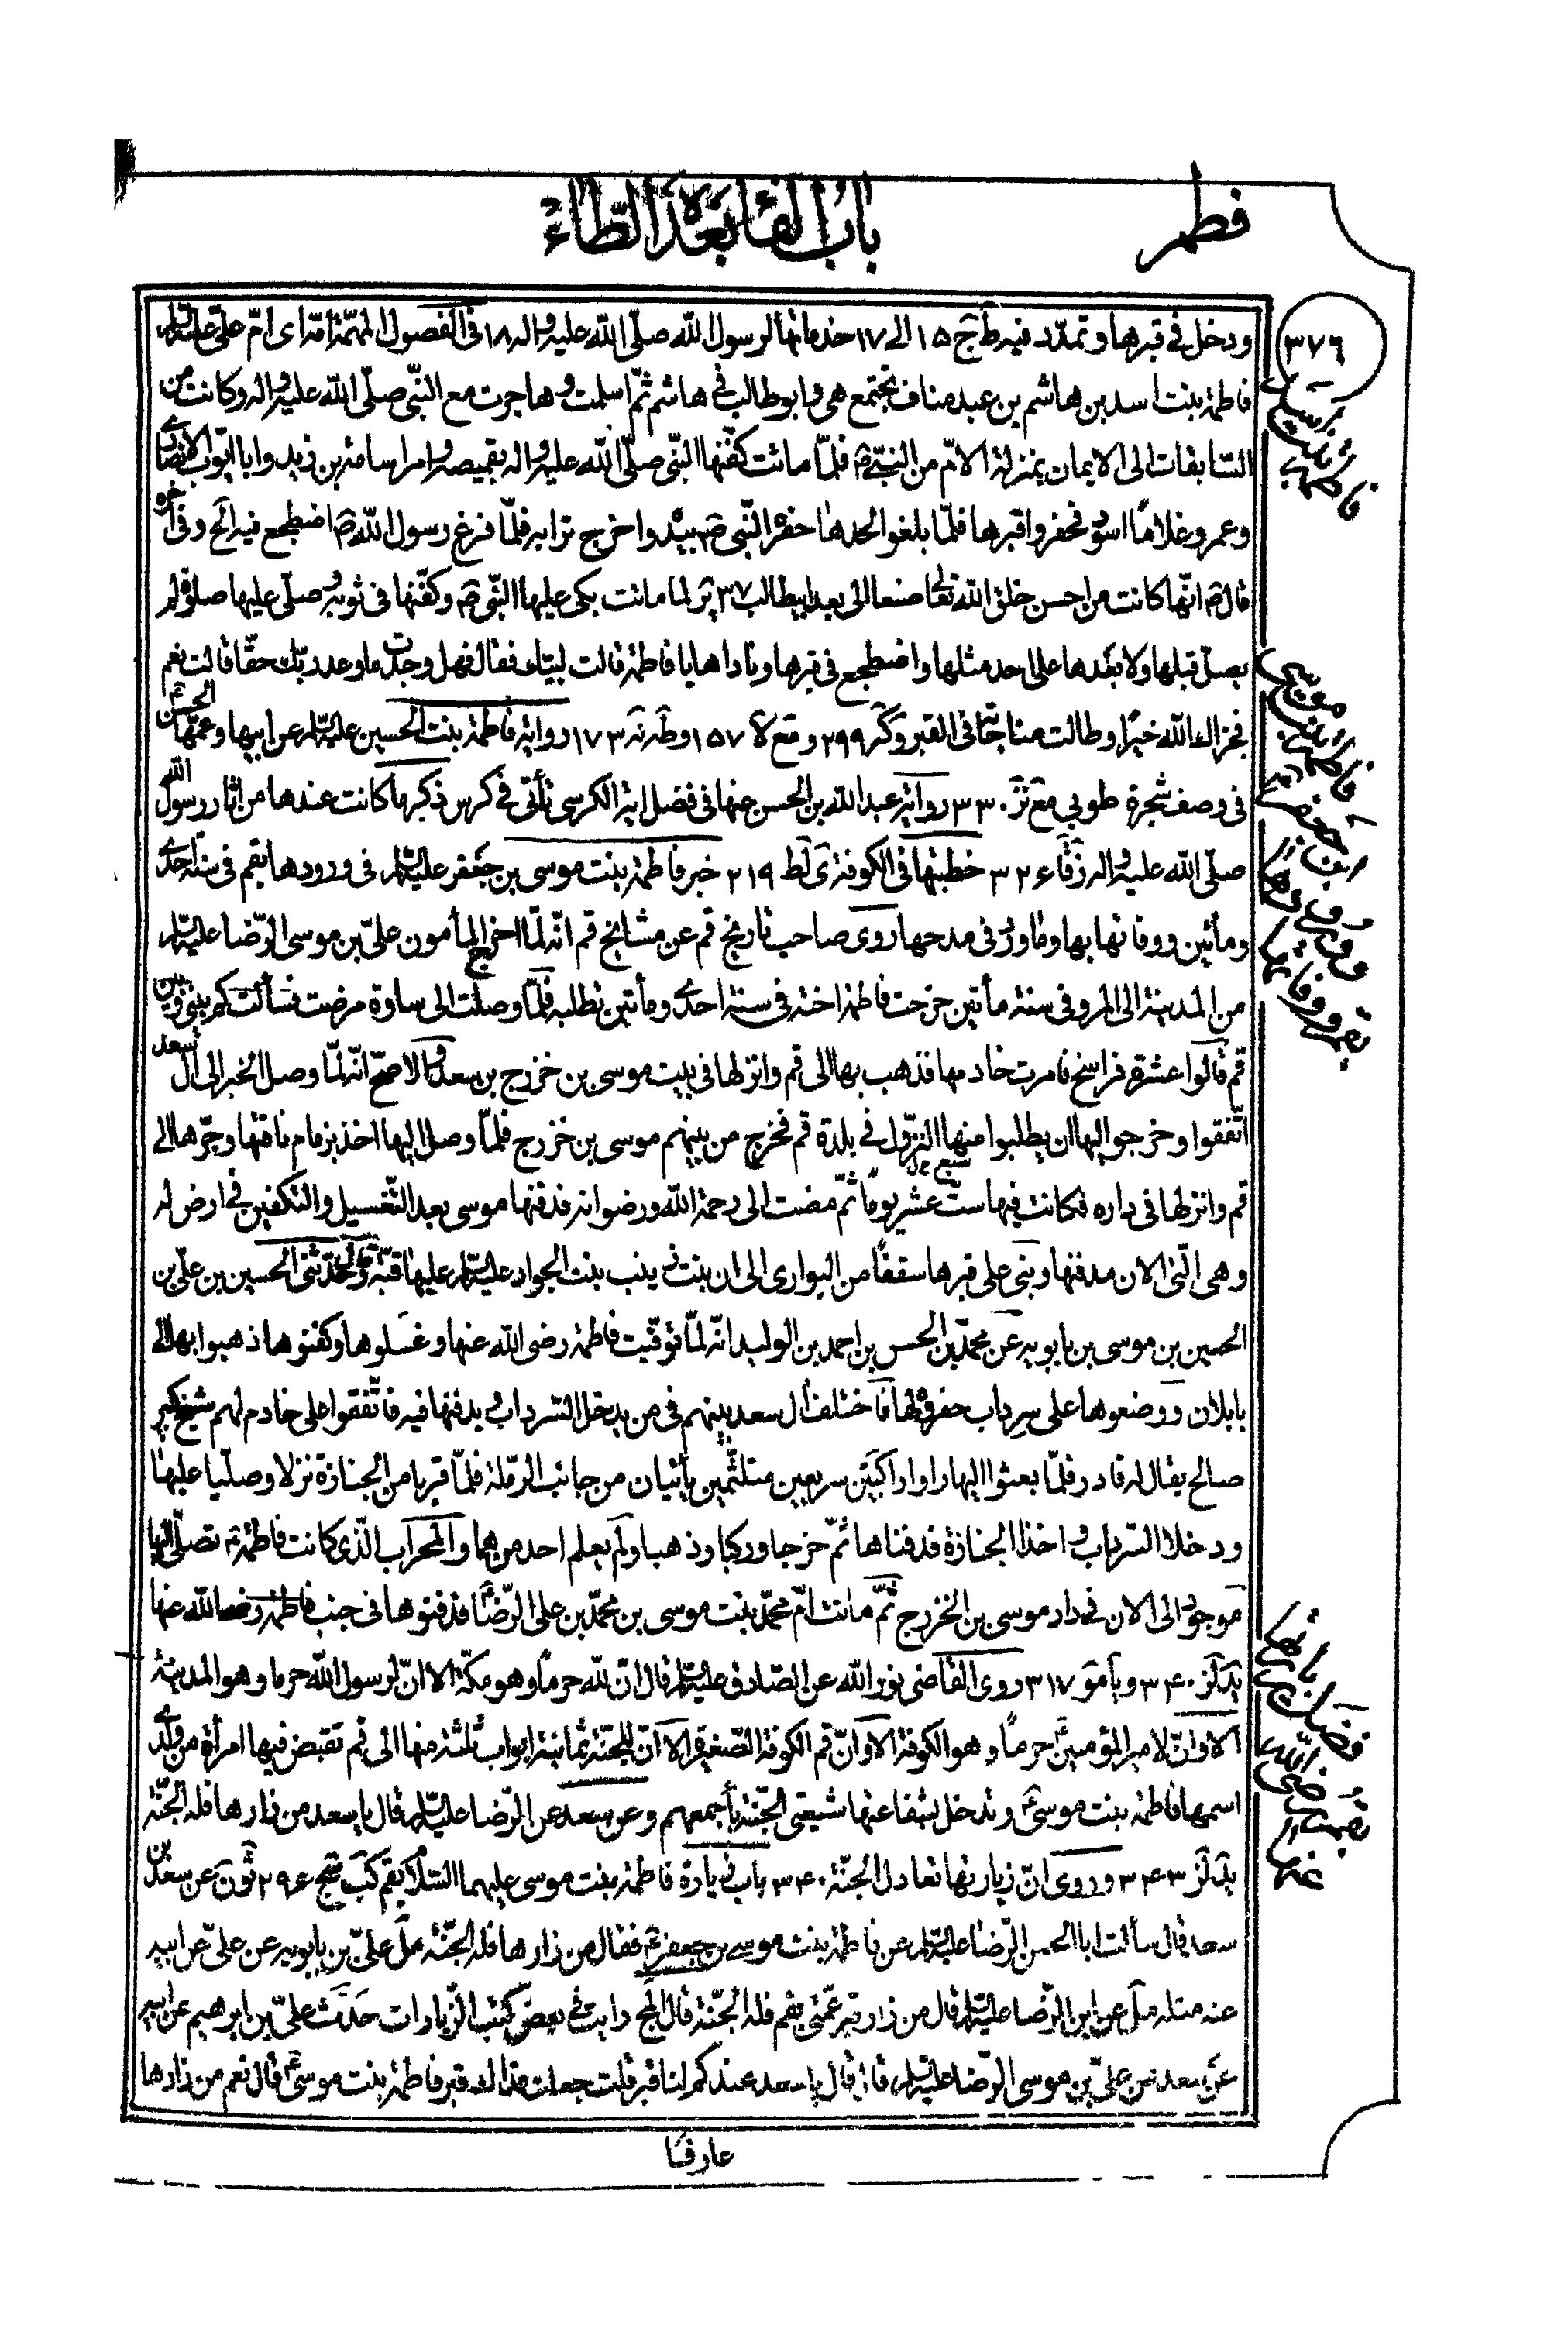 فطم
باب الفاء بعده الطاء
٣٧٦
ودخل في قبرها وتمدّد فيه ط ج ١٥ الى ١٧ خدماتها لرسول الله صلّى الله عليه واله ١٨ فى الفصول المهمّة امّه اى امّ علىّ عليه السلام
فاطمة بنت اسد بن هاشم بن عبد مناف تجتمع هى وابو طالب في هاشم ثمّ اسلمت وهاجرت مع النّبى صلّى الله عليه واله وكانت من
السّابقات الى الايمان بمنزلة الامّ من النبيّ ص فلمّا ماتت كفّنها النبّى صلّى الله عليه واله بقميصه وامر اسامة بن زيد وابا ايّوب الانصارى
وعمر وغلامًا اسود فحفروا قبرها فلمّا بلغوا لحدها حفره النّبى ص بيده واخرج ترابه فلمّا فرغ رسول الله ص اضطجع فيه الخ وفى اخره
قال ص انّها كانت من احسن خلق الله تعالى صنعا الىّ بعد ابيطالب ٣٧ لما ماتت بكى عليها النّبى ص وكفّنها فى ثوبه وصلّى عليها صلوة لم
يصلّ قبلها ولا بعدها على احد مثلها واضطجع فى قبرها وناداها يا فاطمة قالت لبيك فقال فهل وجدت ما وعد ربّك حقّا قالت نعم
فجزاك الله خيرًا وطالت مناجاته فى القبر ٢٩٩ ومع ١٥٧ ١٧٣ رواية فاطمة بنت الحسين عليه السلام عن ابيها وعمّها الحسن
فى وصف شجرة طوبى مع ٣٣٠ رواية عبد الله بن الحسن عنها فى فضل اية الكرسى تأتى فى كرس ذكر ما كانت عندها من اثار رسول الله
صلّى الله عليه واله ٣٢٦ خطبتها فى الكوفة ٢١٩ خبر فاطمة بنت موسى بن جعفر عليه السلام فى ورودها بقم فى سنة احدى
ومأتين ووفاتها بها وما ورد فى مدحها روى صاحب تاريخ قم عن مشايخ قم انّه لمّا اخرج المأمون علىّ بن موسى الرّضا عليه السلام
من المدينة الى المرو فى سنة مأتين خرجت فاطمة اخته فى سنة احدى ومأتين تطلبه فلمّا وصلت الى ساوة مرضت فسألت كم بينى وبين
قم قالوا عشرة فراسخ فامرت خادمها فذهب بها الى قم وانزلها فى بيت موسى بن خزرج بن سعد والاصحّ انّه لمّا وصل الخبر الى ال سعد
اتّفقوا وخرجوا اليها ان يطلبوا منها النّزول في بلدة قم فخرج من بينهم موسى بن خزرج فلمّا وصل اليها اخذ بزمام ناقتها وجرّها الى
قم وانزلها فى داره فكانت فيها ستّ عشر يومًا ثمّ مضت الى رحمة الله ورضوانه فدفنها موسى بعد التّغسيل والتكفين في ارض له
وهى الّتى الان مدفنها وبنى على قبرها سقفًا من البوارى الى ان بنت زينب بنت الجواد عليه السلام عليها قبّة وحدّثنى الحسين بن علىّ بن
الحسين بن موسى بن بابويه عن محمّد بن الحسن بن احمد بن الوليد انّه لمّا توفّيت فاطمة رضى الله عنها وغسلوها وكفنوها ذهبوا بها الى
بابلان ووضعوها على سرداب حفروه لها فاختلف ال سعد بينهم فى من يدخل السّرداب ويدفنها فيه فاتّفقوا على خادم لهم شيخ كبير
صالح يقال له قادر فلمّا بعثوا اليها راوا راكبين سريعين متلثّمين يأتيان من جانب الرّملة فلمّا قربا من الجنازة نزلا وصلّيا عليها
ودخلا السّرداب واخذا الجنازة فدفناها ثمّ خرجا وركبا وذهبا ولم يعلم احد من هما والمحراب الّذى كانت فاطمة تصلّى اليها
موجود الى الان في دار موسى بن الخزرج ثمّ ماتت امّ محمّد بنت موسى بن محمّد بن على الرّضا فدفنوها فى جنب فاطمة رضى الله عنها
٣٤٠ ٣١٧ روى القاضى نور الله عن الصّادق عليه السلام قال انّ لله حرمًا وهو مكّة الا انّ لرسول الله حرما وهو المدينة
الا وانّ لامير المؤمنين حرمًا وهو الكوفة الا وانّ قم الكوفة الصّغيرة الا انّ للجنّة ثمانية ابواب ثلثة منها الى قم تقبض فيها امرأة من ولدى
اسمها فاطمة بنت موسى وتدخل بشفاعتها شيعتى الجنّة بأجمعهم وعن سعد عن الرّضا عليه السلام قال يا سعد من زارها فله الجنّة
٣٤٣ وروى انّ زيارتها تعادل الجنّة ٣٤٠ باب زيارة فاطمة بنت موسى عليهما السّلام بقم ٢٩٦ عن سعد بن
سعد قال سألت ابا الحسن الرّضا عليه السلام عن فاطمة بنت موسى بن جعفر فقال من زارها فله الجنّة علىّ بن بابويه عن علىّ عن ابيه
عنه مثله عن ابن الرّضا عليه السلام قال من زار قبر عمّتى بقم فله الجنّة قال رايت في بعض كتب الزّيارات حدّث علىّ بن ابرهيم عن ابيه
عن سعد عن علىّ بن موسى الرّضا عليه السلام قال قال يا سعد عندكم لنا قبر قلت جعلت فداك قبر فاطمة بنت موسى قال نعم من زارها
عارفا